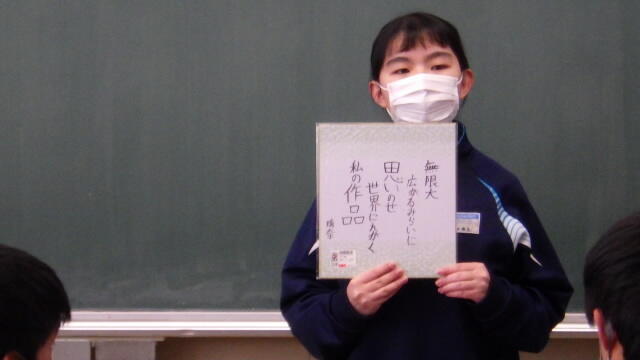 無限大
広がるみらいに
思いのせ
世界にえがく
私の作品